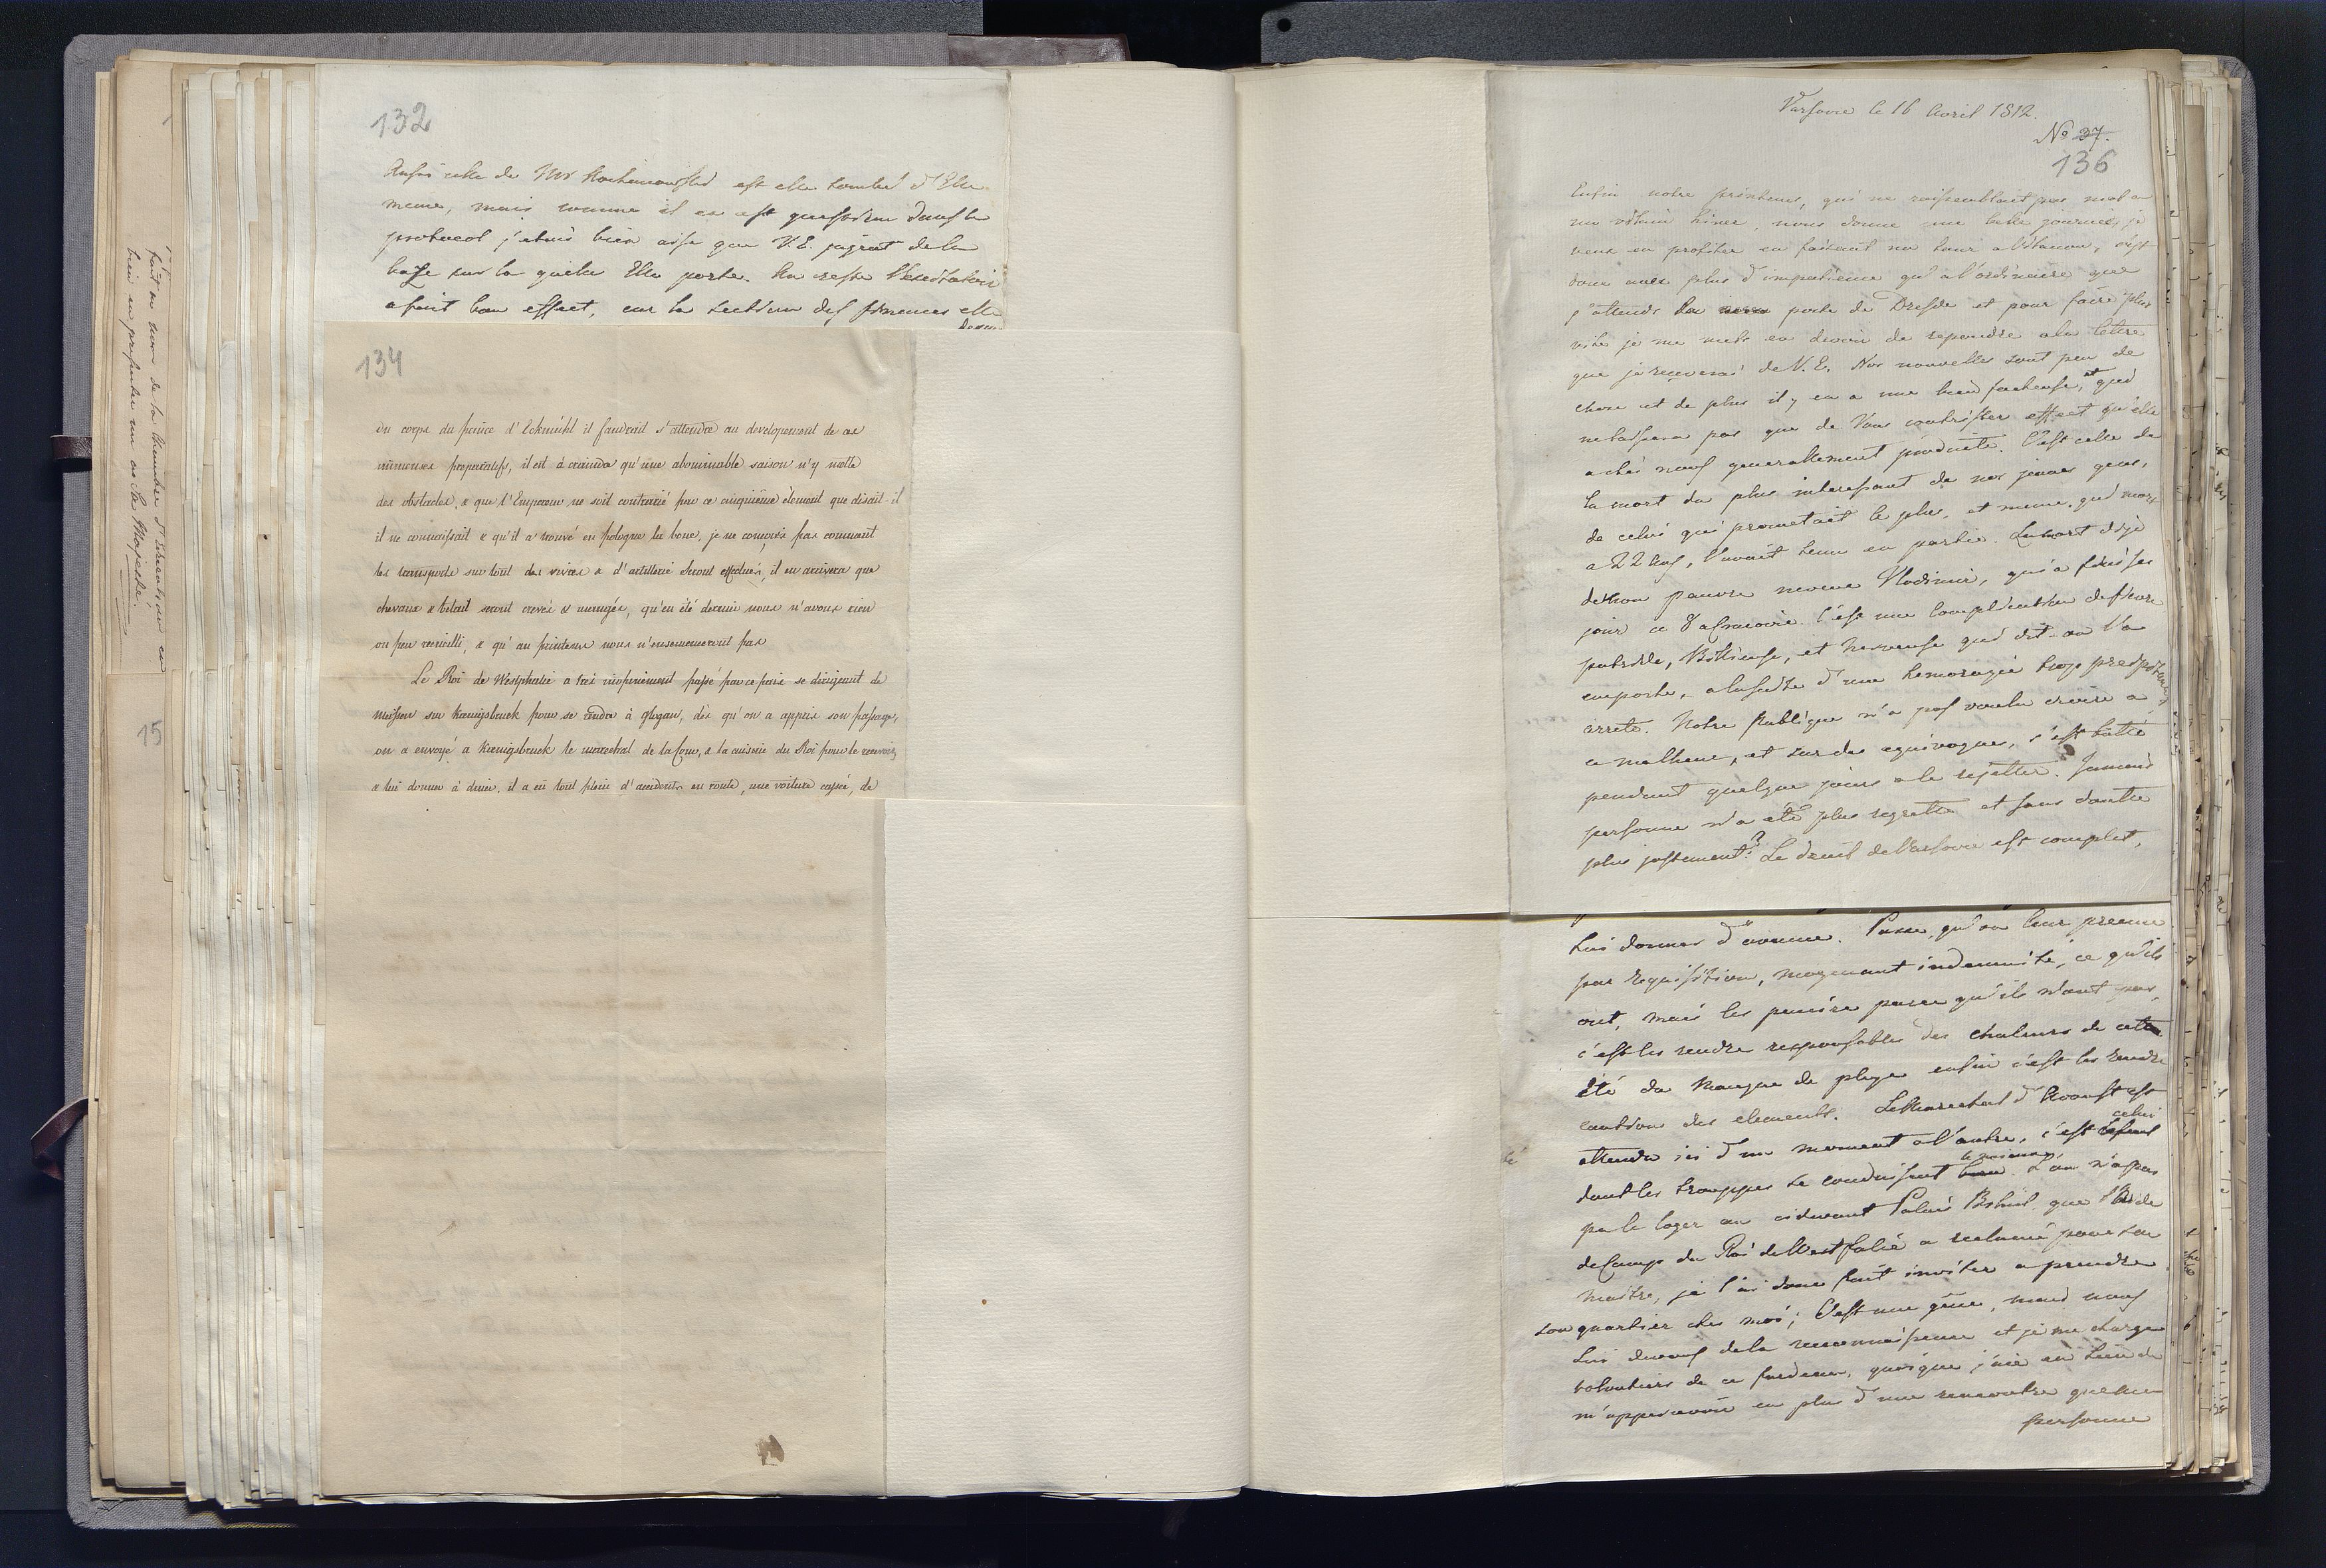 132
Aussi celle de Mr Kochanowski est elle tombée d'Elle
meme, mais comme il en est question dans le
protocol j'etais bien aise que V.E. jugeat de la
baze sur la quelle Elle porte. Au reste
a fait bon effect, car la section des finances elle
134
du corps du prince d'Eckmühl il faudrait s'attendre au developement de ces
immenses preparatifs, il est à craindre qu'une abominable saison n'y mette
des obstacles, & que l'Empereur ne soit contrarié par ce cinquième élement que disait-il
il ne connaissait & qu'il a trouvé en pologne la boue, je ne conçois pas comment
les transports sur tout des vivres & d'artillerie seront effectués, il en arrivera que
chevaux & betail seront crevés & mangés, qu'en été dernier nous n'avons rien
ou peu recueilli, & qu'au printems nous n'ensemenceront pas
Le Roi de Westphalie a très inopinément passé par ce pais se dirigeant de
meissen sur Kœnigsbruck pour se rendre à glogau, dès qu'on a appris son passage,
on a envoyé a Kœnigsbruck le marechal de la Cour, & la cuisine du Roi pour le recevoir
& lui donner à diner, il a eu tout plein d'accidents en route, une voiture cassée, de
fait au nom de la Chambre d'
bien en presenter un à Sa Majesté.
15
Varsovie le 16 Avril 1812.
No 37.
136
Enfin notre printems, qui ne ressemblait pas mal a
un vilain hiver, nous donne une belle journée, je
veux en profiter en faisant un tour a Vilanow, c'est
donc avec plus d'impatience qu'a l'ordinaire que
j'attends la poste de Dresde et pour faire plus
vite je me mets en devoir de repondre a la lettre
que je reçeverai de V.E. Nos nouvelles sont peu de
chose et de plus il y en a une bien facheuse, et qui
ne laissera pas que de Vous contrister effect qu'elle
a chés nous generallement produite. C'est celle de
la mort du plus interessant de nos jeunes gens,
de celui qui prometait le plus, et meme, qui mort
a 22 ans, l'avait tenu en partie. La mort dis-je
de mon pauvre neveu Vlodimir, qui a fini ses
jours a Cracovie. C'est une Complication de fievre
putride, Billieuse, et nerveuse qui dit-on l'a
emporté, a la suite d'une hemoragie trop
arreté. Notre Publique n'a pas voulu croire a
ce malheur, et sur des equivoques, s'est battie
pendant quelque jours a le rejetter. Jamais
personne n'a été plus regretté et sans doutte
plus justement? Le deuil de Varsovie est complet,
lui donner d'avance. Passe, qu'on leur prenne
par requisition, moyenant indemnité, ce qu'ils
ont, mais les punir parce qu'ils n'ont pas,
c'est les rendre responsables des chaleurs de cet
été du manque de pluye enfin c'est les rendre
caution des elements. Le Marechal d'Avoust est
attendu ici d'un moment a l'autre, c'est celui
dont les trouppes se conduisent le mieux. L'on n'a pas
pu le loger au cidevant Palais Brühl, que l'Aide
de Camp du Roi de Westfalie a reclamé pour son
maitre, je l'ai donc fait inviter a prendre
son quartier chez moi; C'est une gêne, mais nous
lui devons de la reconnaissance et je me charge
volontiers de ce fardeau, quoique j'aie eu lieu de
m'appercevoir en plus d'une rencontre que
personne